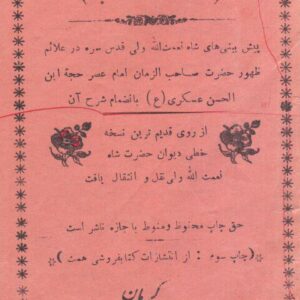 پیش بینی‌های شاه نعمت‌الله ولی قدس سره در علائم
ظهور حضرت صاحب الزمان امام عصر حجة ابن
الحسن عسکری (ع) بانضمام شرح آن
از روی قدیم ترین نسخه
خطی دیوان حضرت شاه
نعمت الله ولی نقل و انتقال یافت
حق چاپ محفوظ ومنوط با جازه ناشر است
(چاپ سوم : از انتشارات کتابفروشی همت)
کرمان